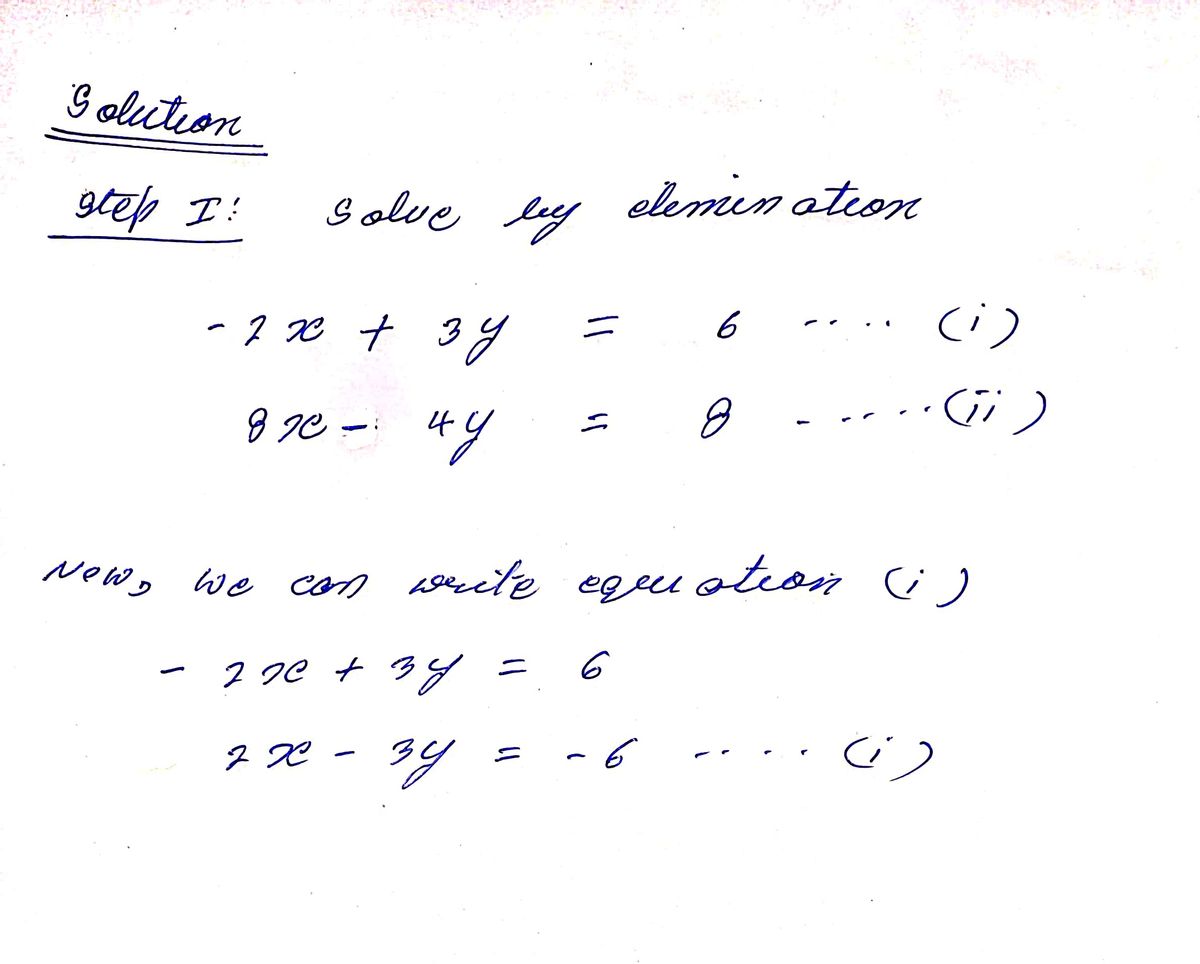 Solution
Step I: Solve by elemination
- 2x + 3y = 6 .... (i)
8x - 4y = 8 ..... (ii)
Now, we can write equation (i)
- 2x + 3y = 6
2x - 3y = - 6 .... (i)